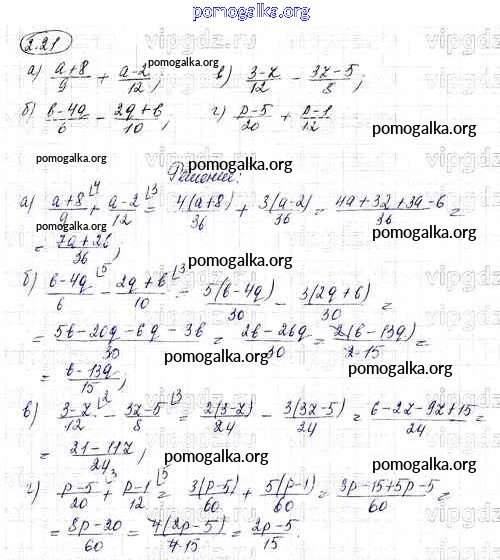 pomogalka.org
2.21
а) (a+8)/9 + (a-2)/12; pomogalka.org в) (3-x)/12 - (3x-5)/8;
б) (b-4q)/6 - (2q+b)/10; г) (p-5)/20 + (p-1)/12 pomogalka.org
pomogalka.org Решение: pomogalka.org
а) (a+8)/9 + (a-2)/12 = 4(a+8)/36 + 3(a-2)/36 = (4a+32+3a-6)/36 =
= (7a+26)/36; pomogalka.org pomogalka.org
б) (b-4q)/6 - (2q+b)/10 = 5(b-4q)/30 - 3(2q+b)/30 =
= (5b-20q-6q-3b)/30 = (2b-26q)/30 = 2(b-13q)/2·15 =
= (b-13q)/15; pomogalka.org pomogalka.org
в) (3-x)/12 - (3x-5)/8 = 2(3-x)/24 - 3(3x-5)/24 = (6-2x-9x+15)/24 =
= (21-11x)/24; pomogalka.org pomogalka.org
г) (p-5)/20 + (p-1)/12 = 3(p-5)/60 + 5(p-1)/60 = (3p-15+5p-5)/60 =
= (8p-20)/60 = 4(2p-5)/4·15 = (2p-5)/15.
pomogalka.org pomogalka.org